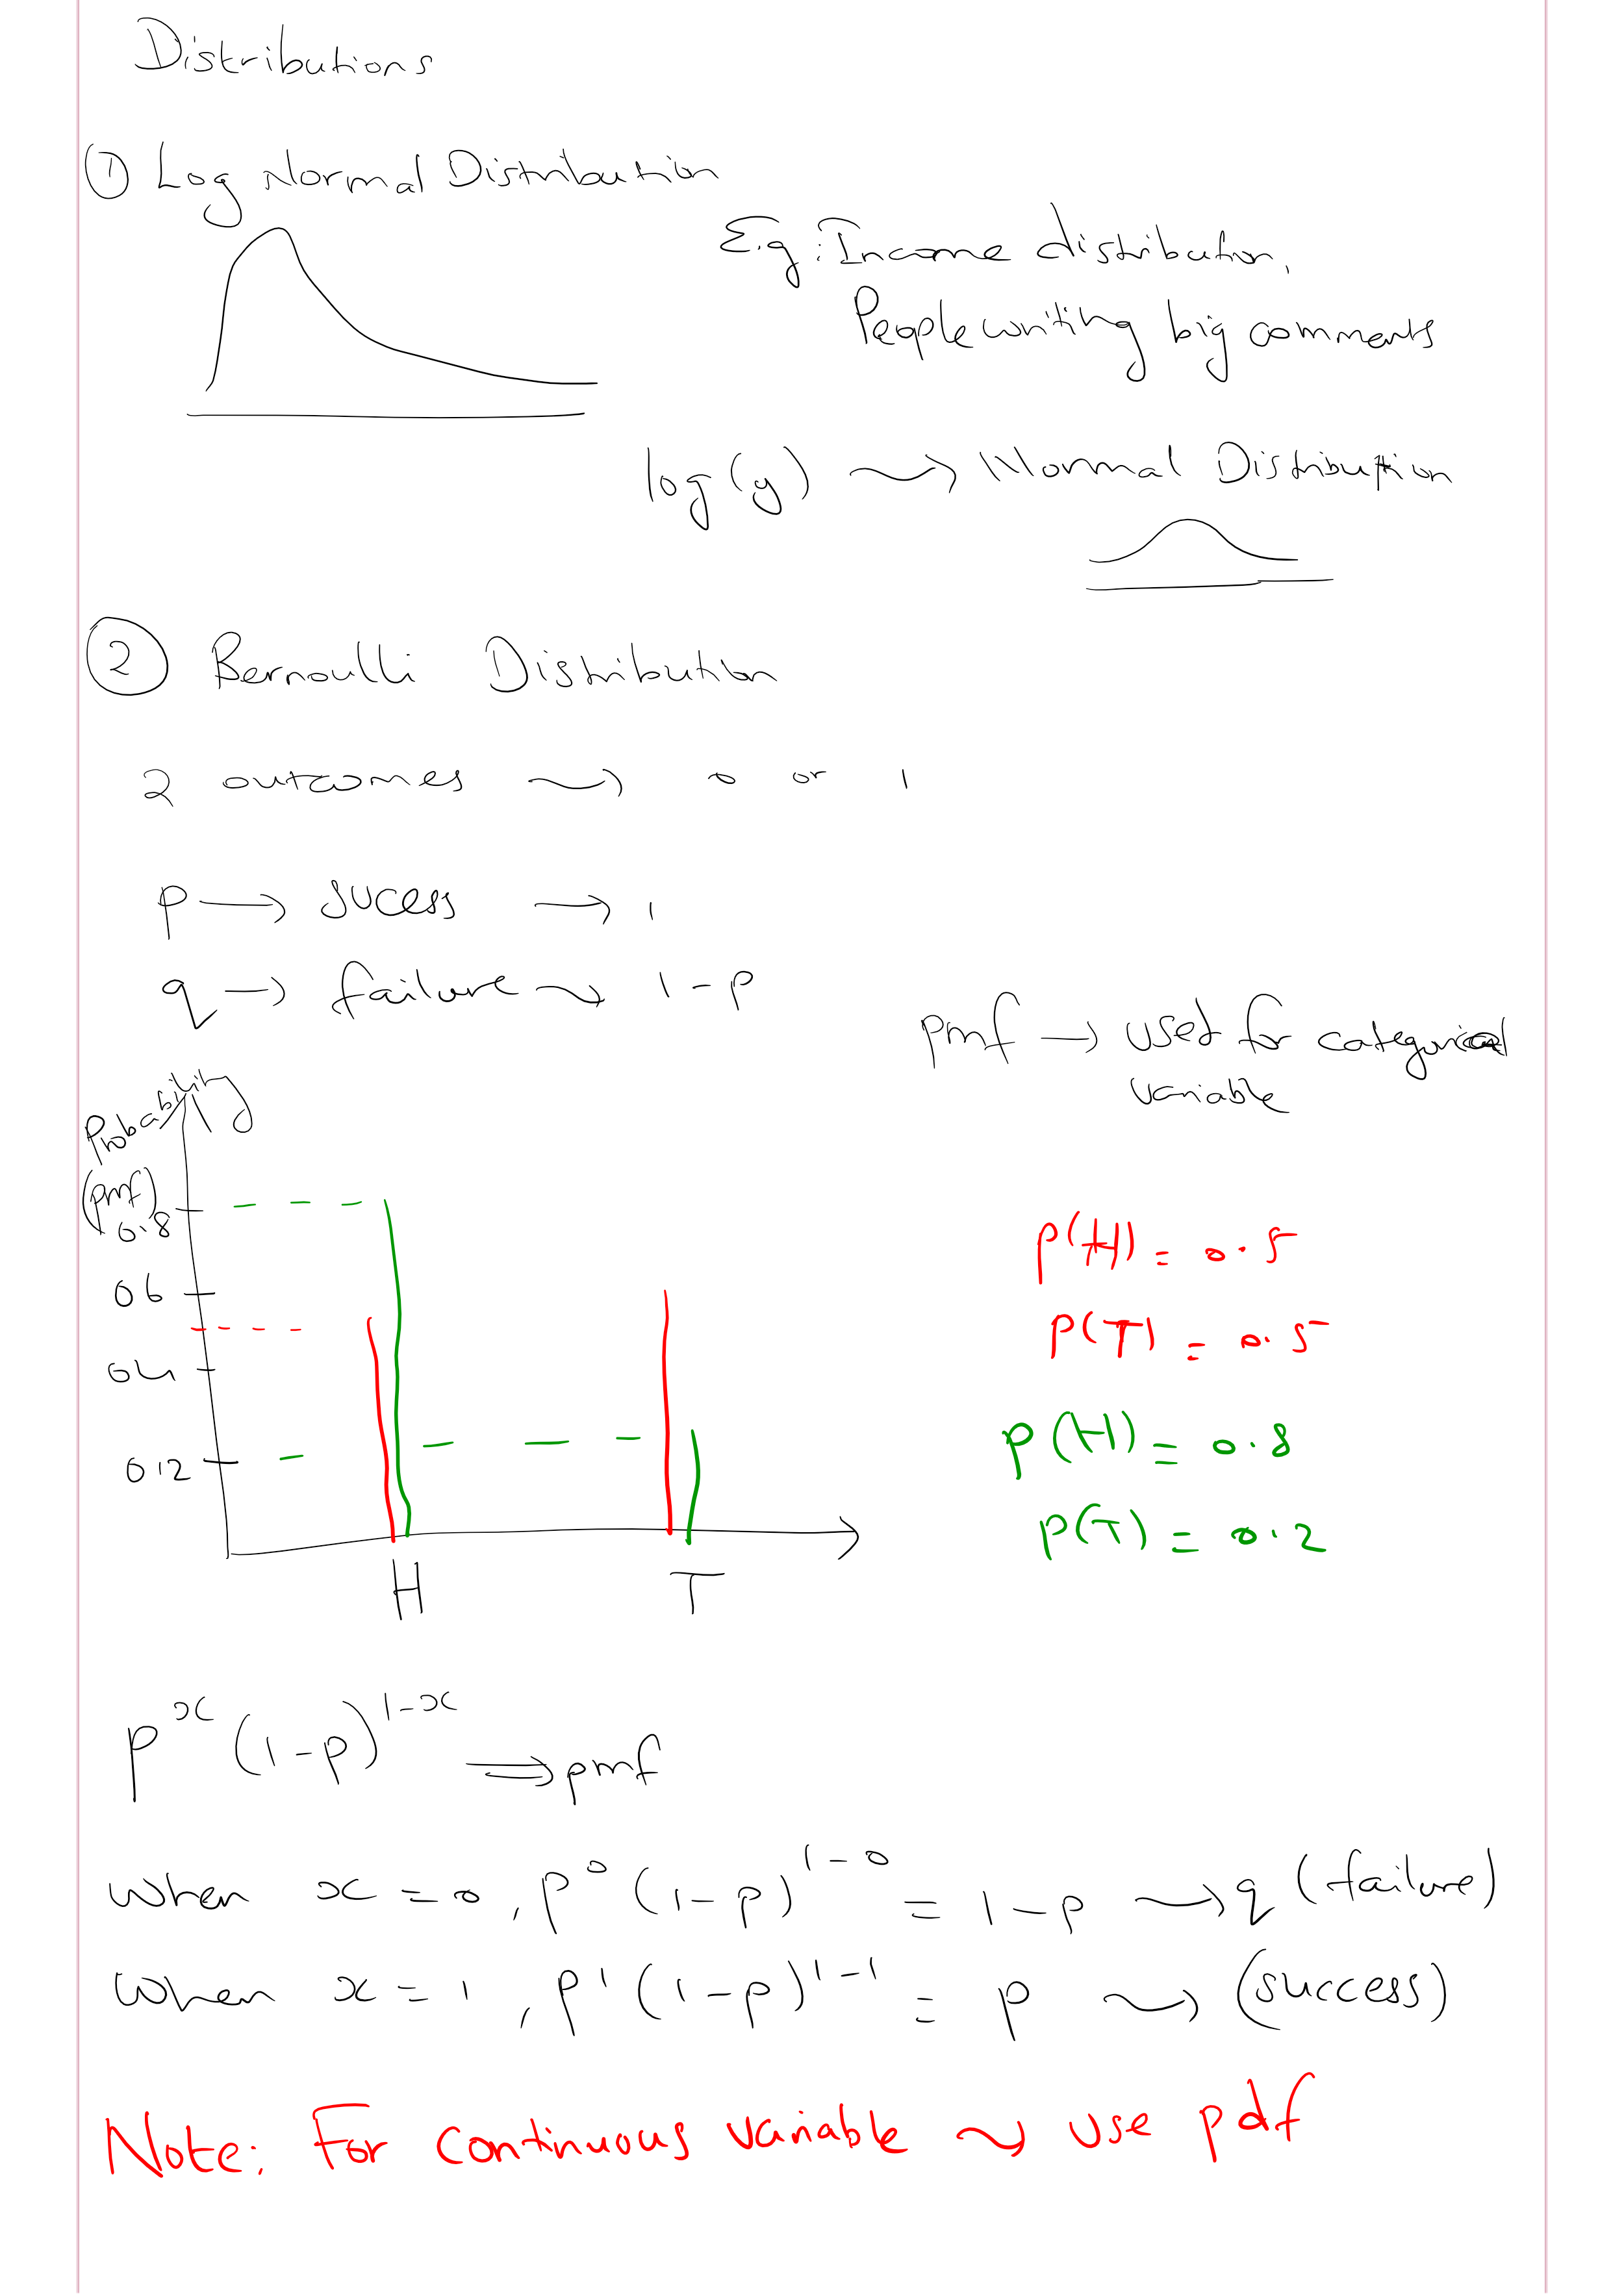 Distributions
① Log Normal Distribution
E.g: Income distribution,
People writing big comments
log(y) → Normal Distribution
② Bernoulli Distribution
2 outcomes → 0 or 1
p → sucess → 1
q → failure → 1-p
pmf → used for categorical
variable
Probability
(pmf)
0.8
06
04
0.2
H T
P(H) = 0.5
P(T) = 0.5
P(H) = 0.8
P(T) = 0.2
p^x (1-p)^1-x ⟹ pmf
when x = 0, p^0 (1-p)^1-0 = 1-p → q (failure)
when x = 1, p^1 (1-p)^1-1 = p → (success)
Note: For continuous variable → use pdf